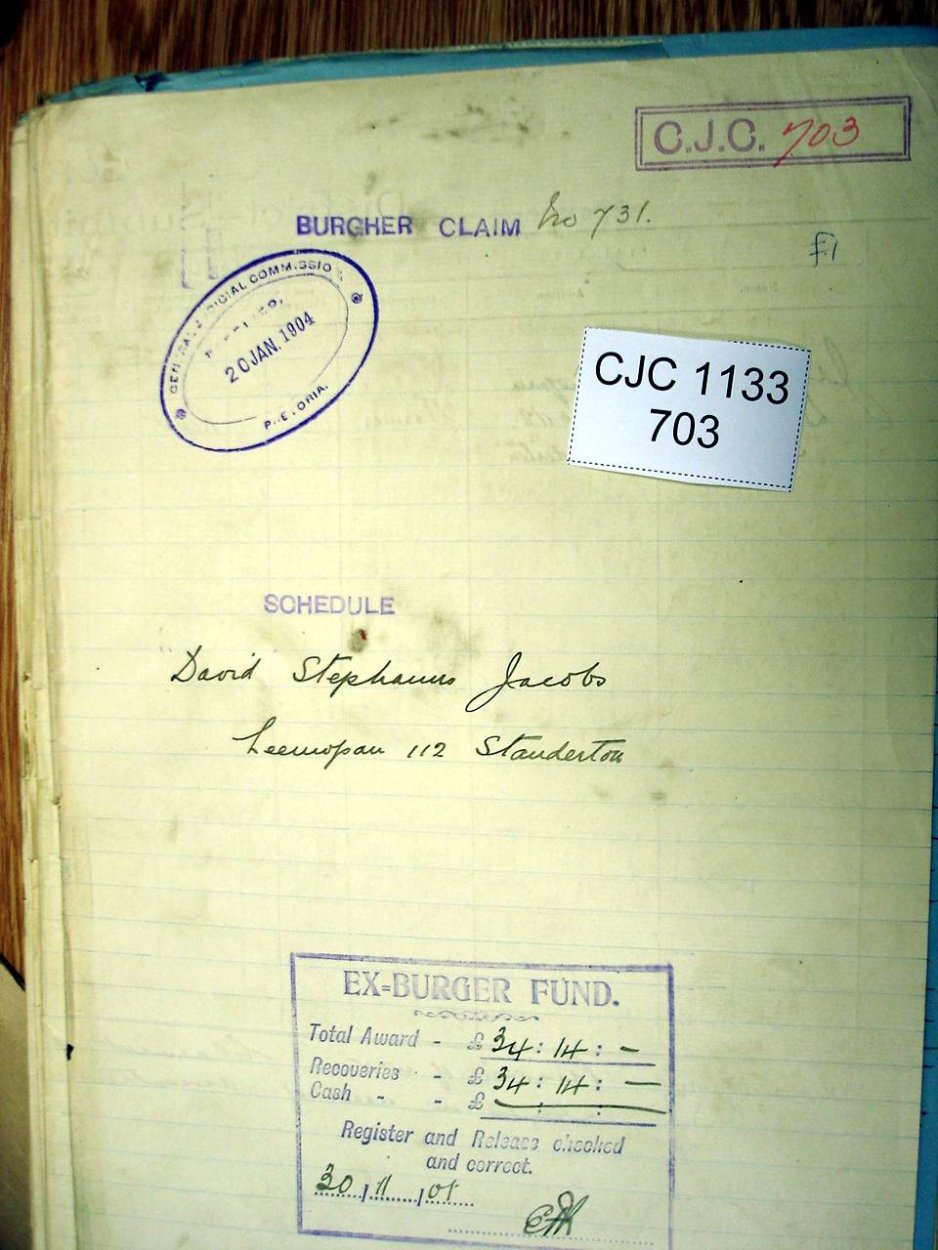 C.J.C. 703
BURGHER CLAIM No 731.
£1
GENERAL JUDICIAL COMMISSION
20 JAN. 1904
PRETORIA.
CJC 1133
703
SCHEDULE
David Stephanus Jacobs
Leeuwpan 112 Standerton
EX=BURGER FUND.
Total Award - £ 34 : 14 : -
Recoveries - £ 34 : 14 : -
Cash - - £ : :
Register and Release checked
and correct.
30/11/05